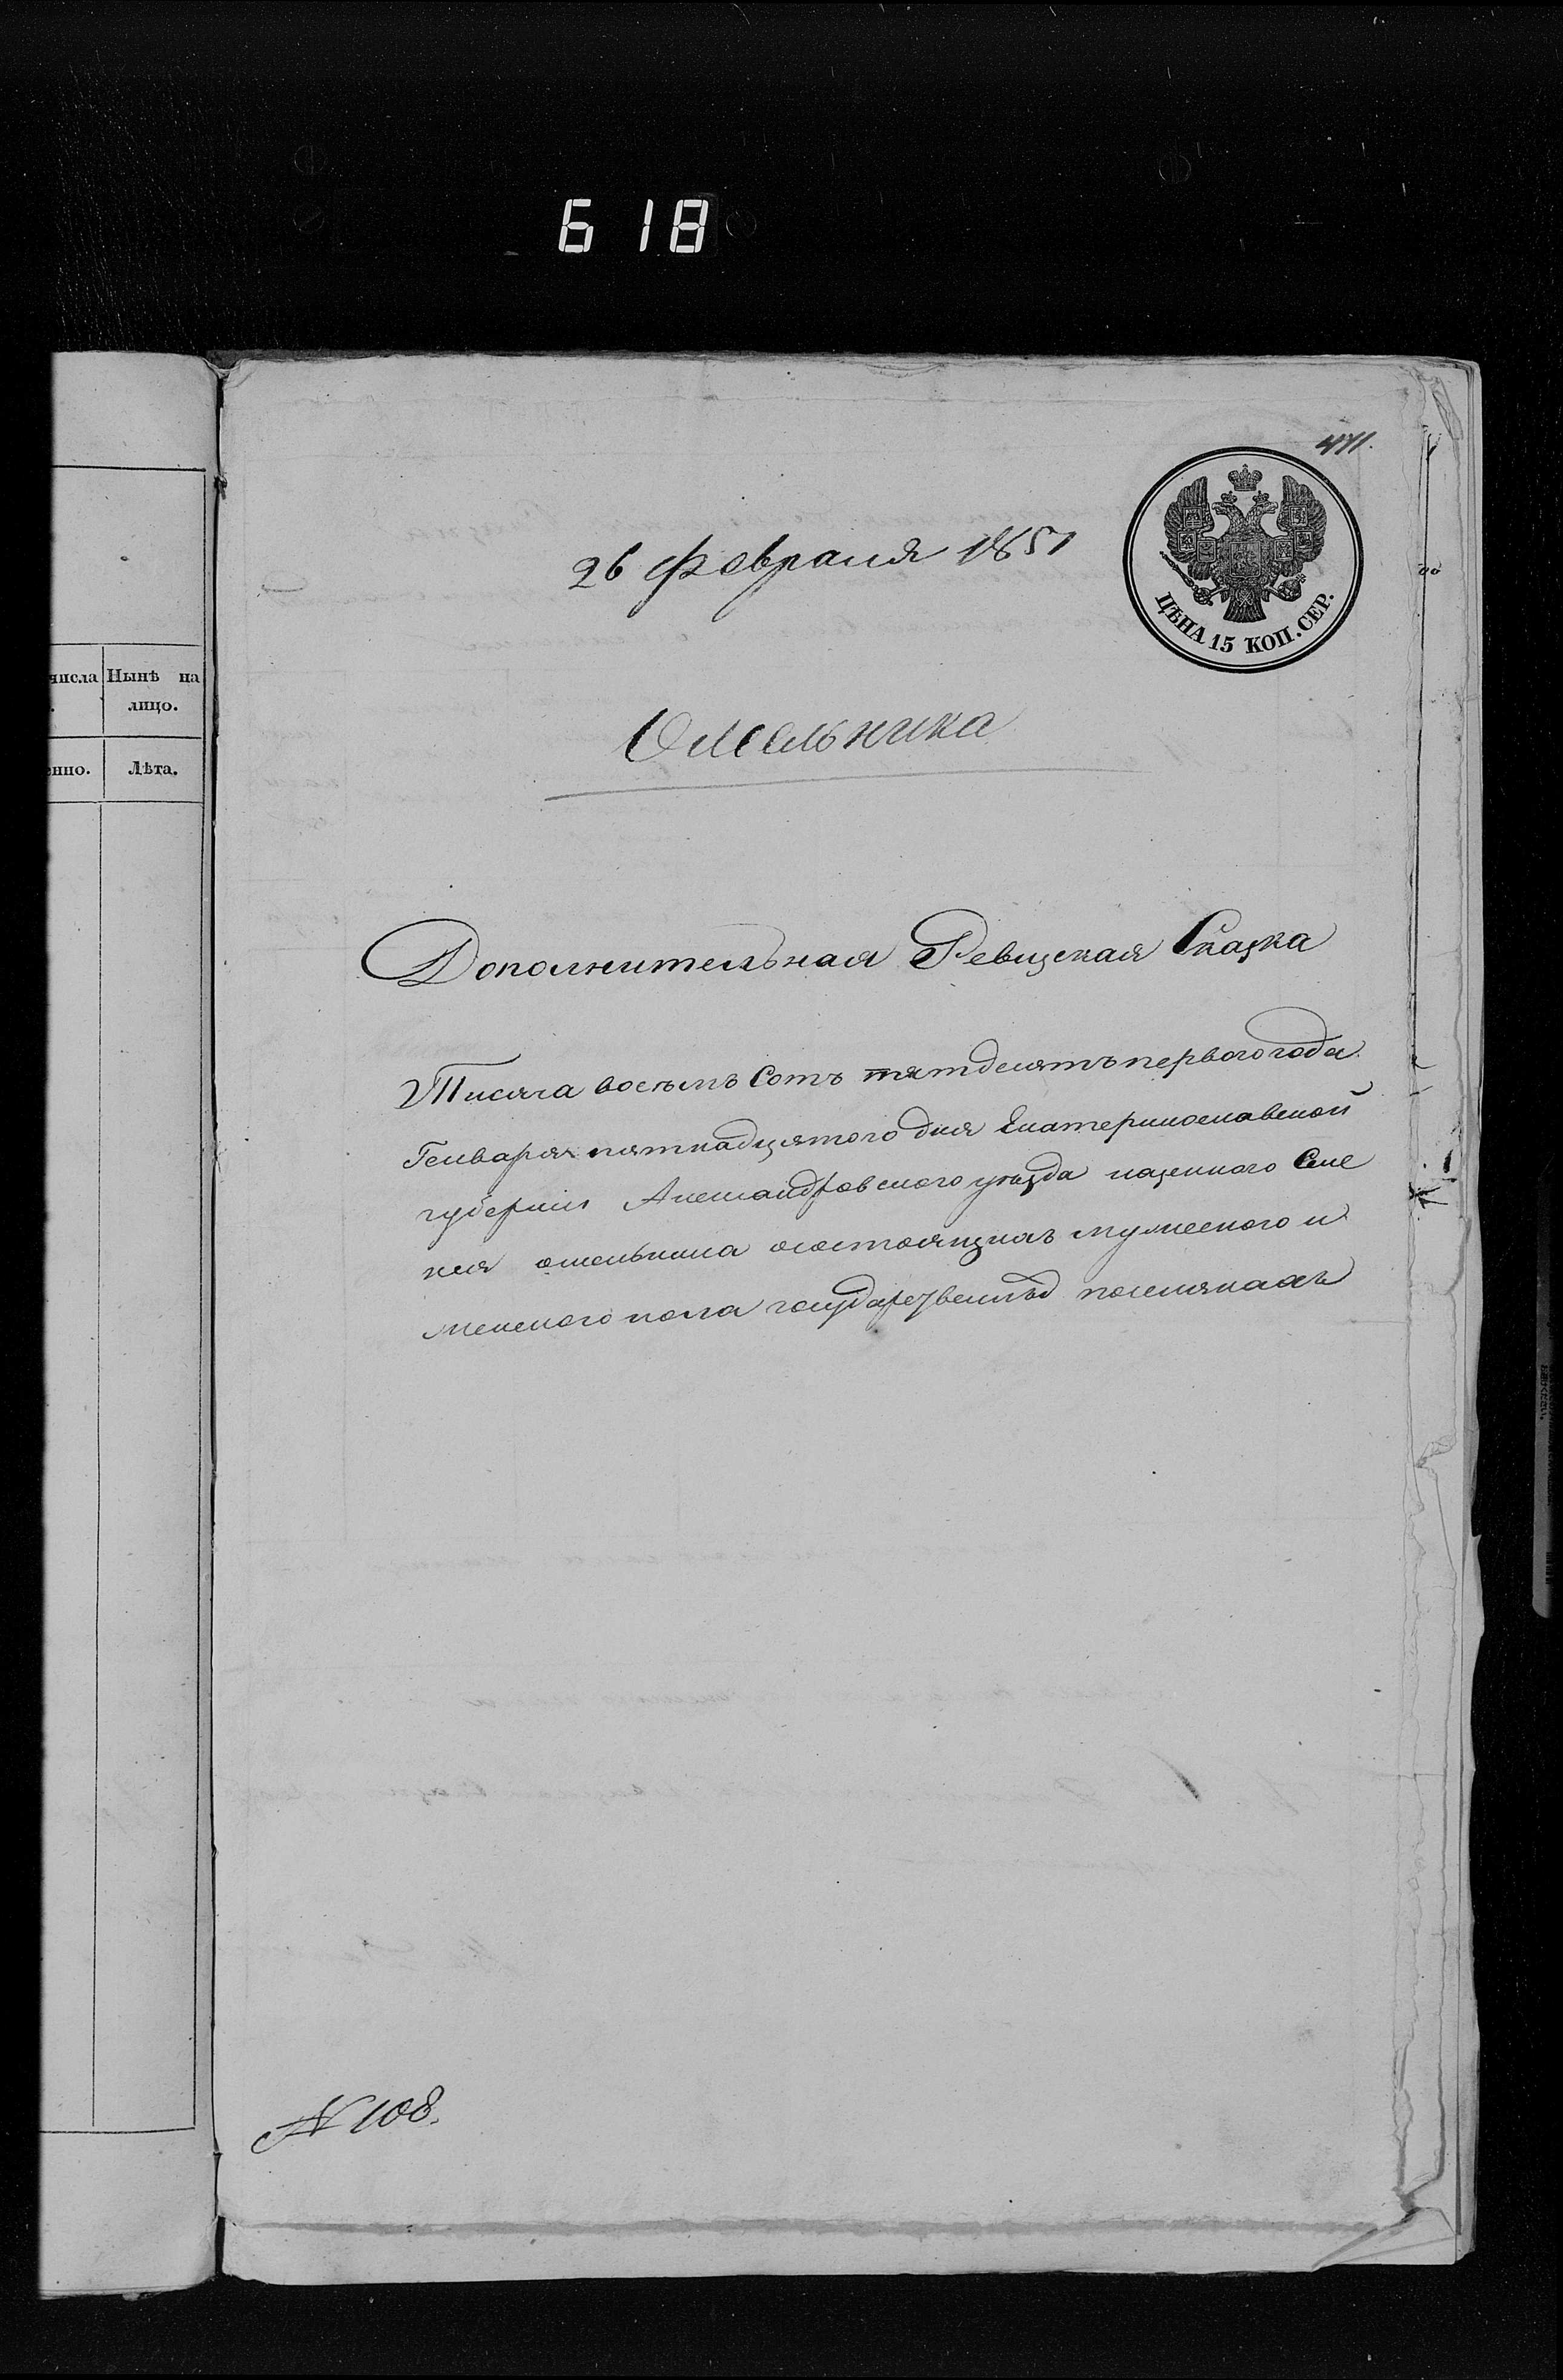 618
числа Нынѣ на
лицо.
енно. Лѣта.
471.
26 февраля 1851
ЦѢНА 15 КОП. СЕР.
Омельника
Дополнительная Ревизская Сказка
Тисяча восемь сотъ пятдесятъ первого года
Генваря пятнадцятого дня Екатеринославской
губернии Александровского уѣзда казенного Селе
ния омельника осостоящихъ мужеского и
женского пола государственныхъ поселянахъ
N 108.